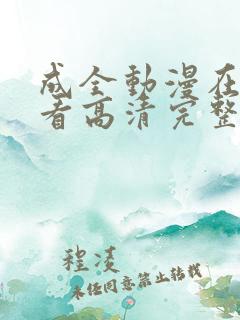 成全動漫在
看高清完整
程凌
未经同意禁止转载